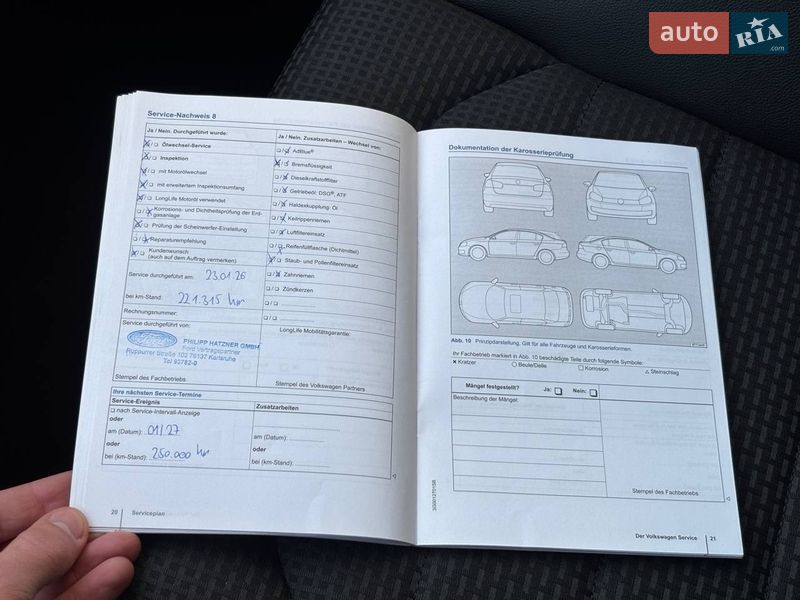 auto
RIA
.com
Service-Nachweis 8
Ja / Nein. Durchgeführt wurde:
Ölwechsel-Service
Inspektion
mit Motorölwechsel
mit erweitertem Inspektionsumfang
LongLife Motoröl verwendet
Korrosions- und Dichtheitsprüfung der Erd-
gasanlage
Prüfung der Scheinwerfer-Einstellung
Reparaturempfehlung
Kundenwunsch
(auch auf dem Auftrag vermerken)
Service durchgeführt am: 23.01.26
bei km-Stand: 221.315 km
Rechnungsnummer:
Service durchgeführt von:
Ford
PHILIPP HATZNER GMBH
Ford Vertragspartner
Ruppurrer Strasse 102 76137 Karlsruhe
Tel 93782-0
Stempel des Fachbetriebs
Ja / Nein. Zusatzarbeiten – Wechsel von:
AdBlue®
Bremsflüssigkeit
Dieselkraftstofffilter
Getriebeöl: DSG®, ATF
Haldexkupplung: Öl
Keilrippenriemen
Luftfiltereinsatz
Reifenfüllflasche (Dichtmittel)
Staub- und Pollenfiltereinsatz
Zahnriemen
Zündkerzen
LongLife Mobilitätsgarantie:
Stempel des Volkswagen Partners
Ihre nächsten Service-Termine
Service-Ereignis
nach Service-Intervall-Anzeige
oder
am (Datum): 01/27
oder
bei (km-Stand): 250.000 km
Zusatzarbeiten
am (Datum):
oder
bei (km-Stand):
20 Serviceplan
Dokumentation der Karosserieprüfung
Abb. 10 Prinzipdarstellung. Gilt für alle Fahrzeuge und Karosserieformen.
Ihr Fachbetrieb markiert in Abb. 10 beschädigte Teile durch folgende Symbole:
× Kratzer
○ Beule/Delle
□ Korrosion
△ Steinschlag
Mängel festgestellt?
Ja:
Nein:
Beschreibung der Mängel:
Stempel des Fachbetriebs
Der Volkswagen Service 21